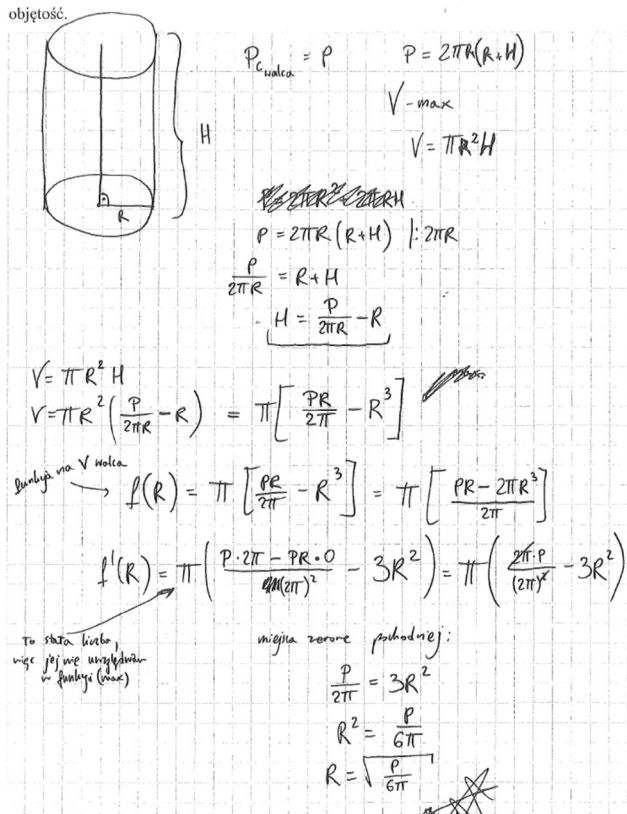 objętość.
P_c walca = P    P = 2πR(R+H)
V - max
V = πR²H
H
R
P = 2πR (R+H) |: 2πR
P/2πR = R+H
H = P/2πR - R
V = πR² H
V = πR² (P/2πR - R) = π[PR/2π - R³]
funkcja na V walca
f(R) = π [PR/2π - R³] = π [(PR - 2πR³)/2π]
f'(R) = π ((P·2π - PR·0)/(2π)² - 3R²) = π (2π·P/(2π)² - 3R²)
To stała liczba,
więc jej nie uwzględniam
w funkcji (max)
miejsca zerowe pochodnej:
P/2π = 3R²
R² = P/6π
R = √(P/6π)